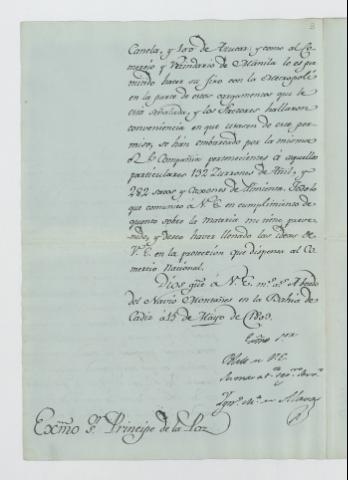 Canela, y 100 de Azucar; y como al Co-
mercio y Vecindario de Manila lo es per-
mitido hacer su giro con la Metropoli
en la parte de estos cargamentos que le
está señalada, y los Factores hallaron
conveniencia en que usasen de este per-
miso, se han embarcado por la misma
Rl. Compañia pertenecientes á aquellos
particulares 132 Zurrones de Añil, y
282 sacos y Caxones de Pimienta. Todo lo
que comunico á V.E. en cumplimiento de
quanto sobre la materia me tiene preve-
nido, y deseo haver llenado las ideas de
V.E. en la proteccion que dispensa al Co-
mercio Nacional.
Dios gue. á V.E. ms. as. Abordo
del Navio Montañes en la Bahia de
Cadiz á 15 de Mayo de 1803.
Exmo. Sor.
BLM de V.E.
su mas
Ygno. Ma. de Alava
Exmo. Sr. Principe de la Paz